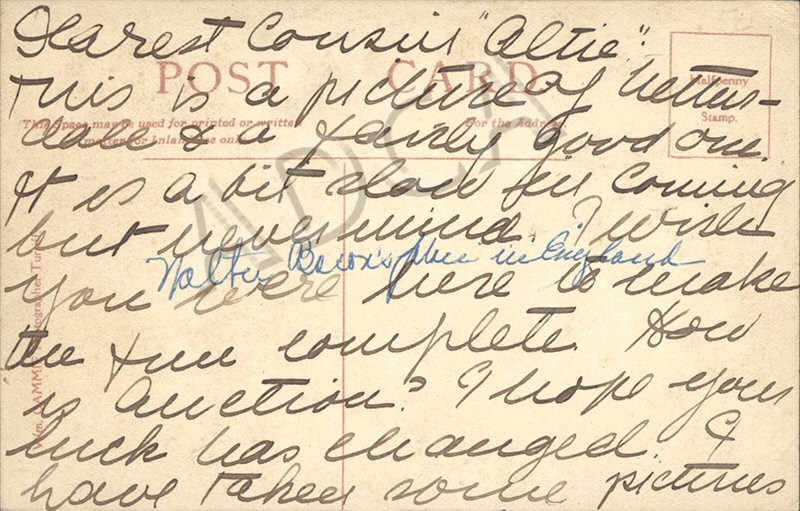 Dearest Cousin "Altie":
POST CARD
This is a picture of Nether-
Halfpenny
Stamp.
This space may be used for printed or written
matter for Inland use only
For the Address
& a fairly good one.
It is a bit slow in coming
but never mind. I wish
Walter in England
you were here to make
the fun complete. How
is Auction? I hope your
luck has changed. I
have taken some pictures
ADCA